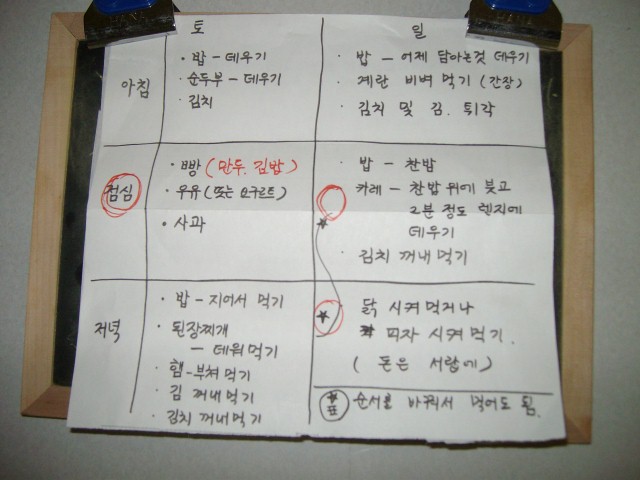 토 일
아침
· 밥 - 데우기
· 순두부 - 데우기
· 김치
· 밥 - 어제 담아논것 데우기
· 계란 비벼 먹기 (간장)
· 김치 및 김. 튀각
점심
· 빵 (만두. 김밥)
· 우유 (또는 요구르트)
· 사과
· 밥 - 찬밥
카레 - 찬밥 위에 붓고
2분 정도 렌지에
데우기
· 김치 꺼내 먹기
저녁
· 밥 - 지어서 먹기
· 된장찌개
- 데워먹기
· 햄 - 부쳐 먹기
· 김 꺼내먹기
· 김치 꺼내 먹기
닭 시켜먹거나
피자 시켜 먹기.
( 돈은 서랍에)
★표 순서를 바꿔서 먹어도 됨.